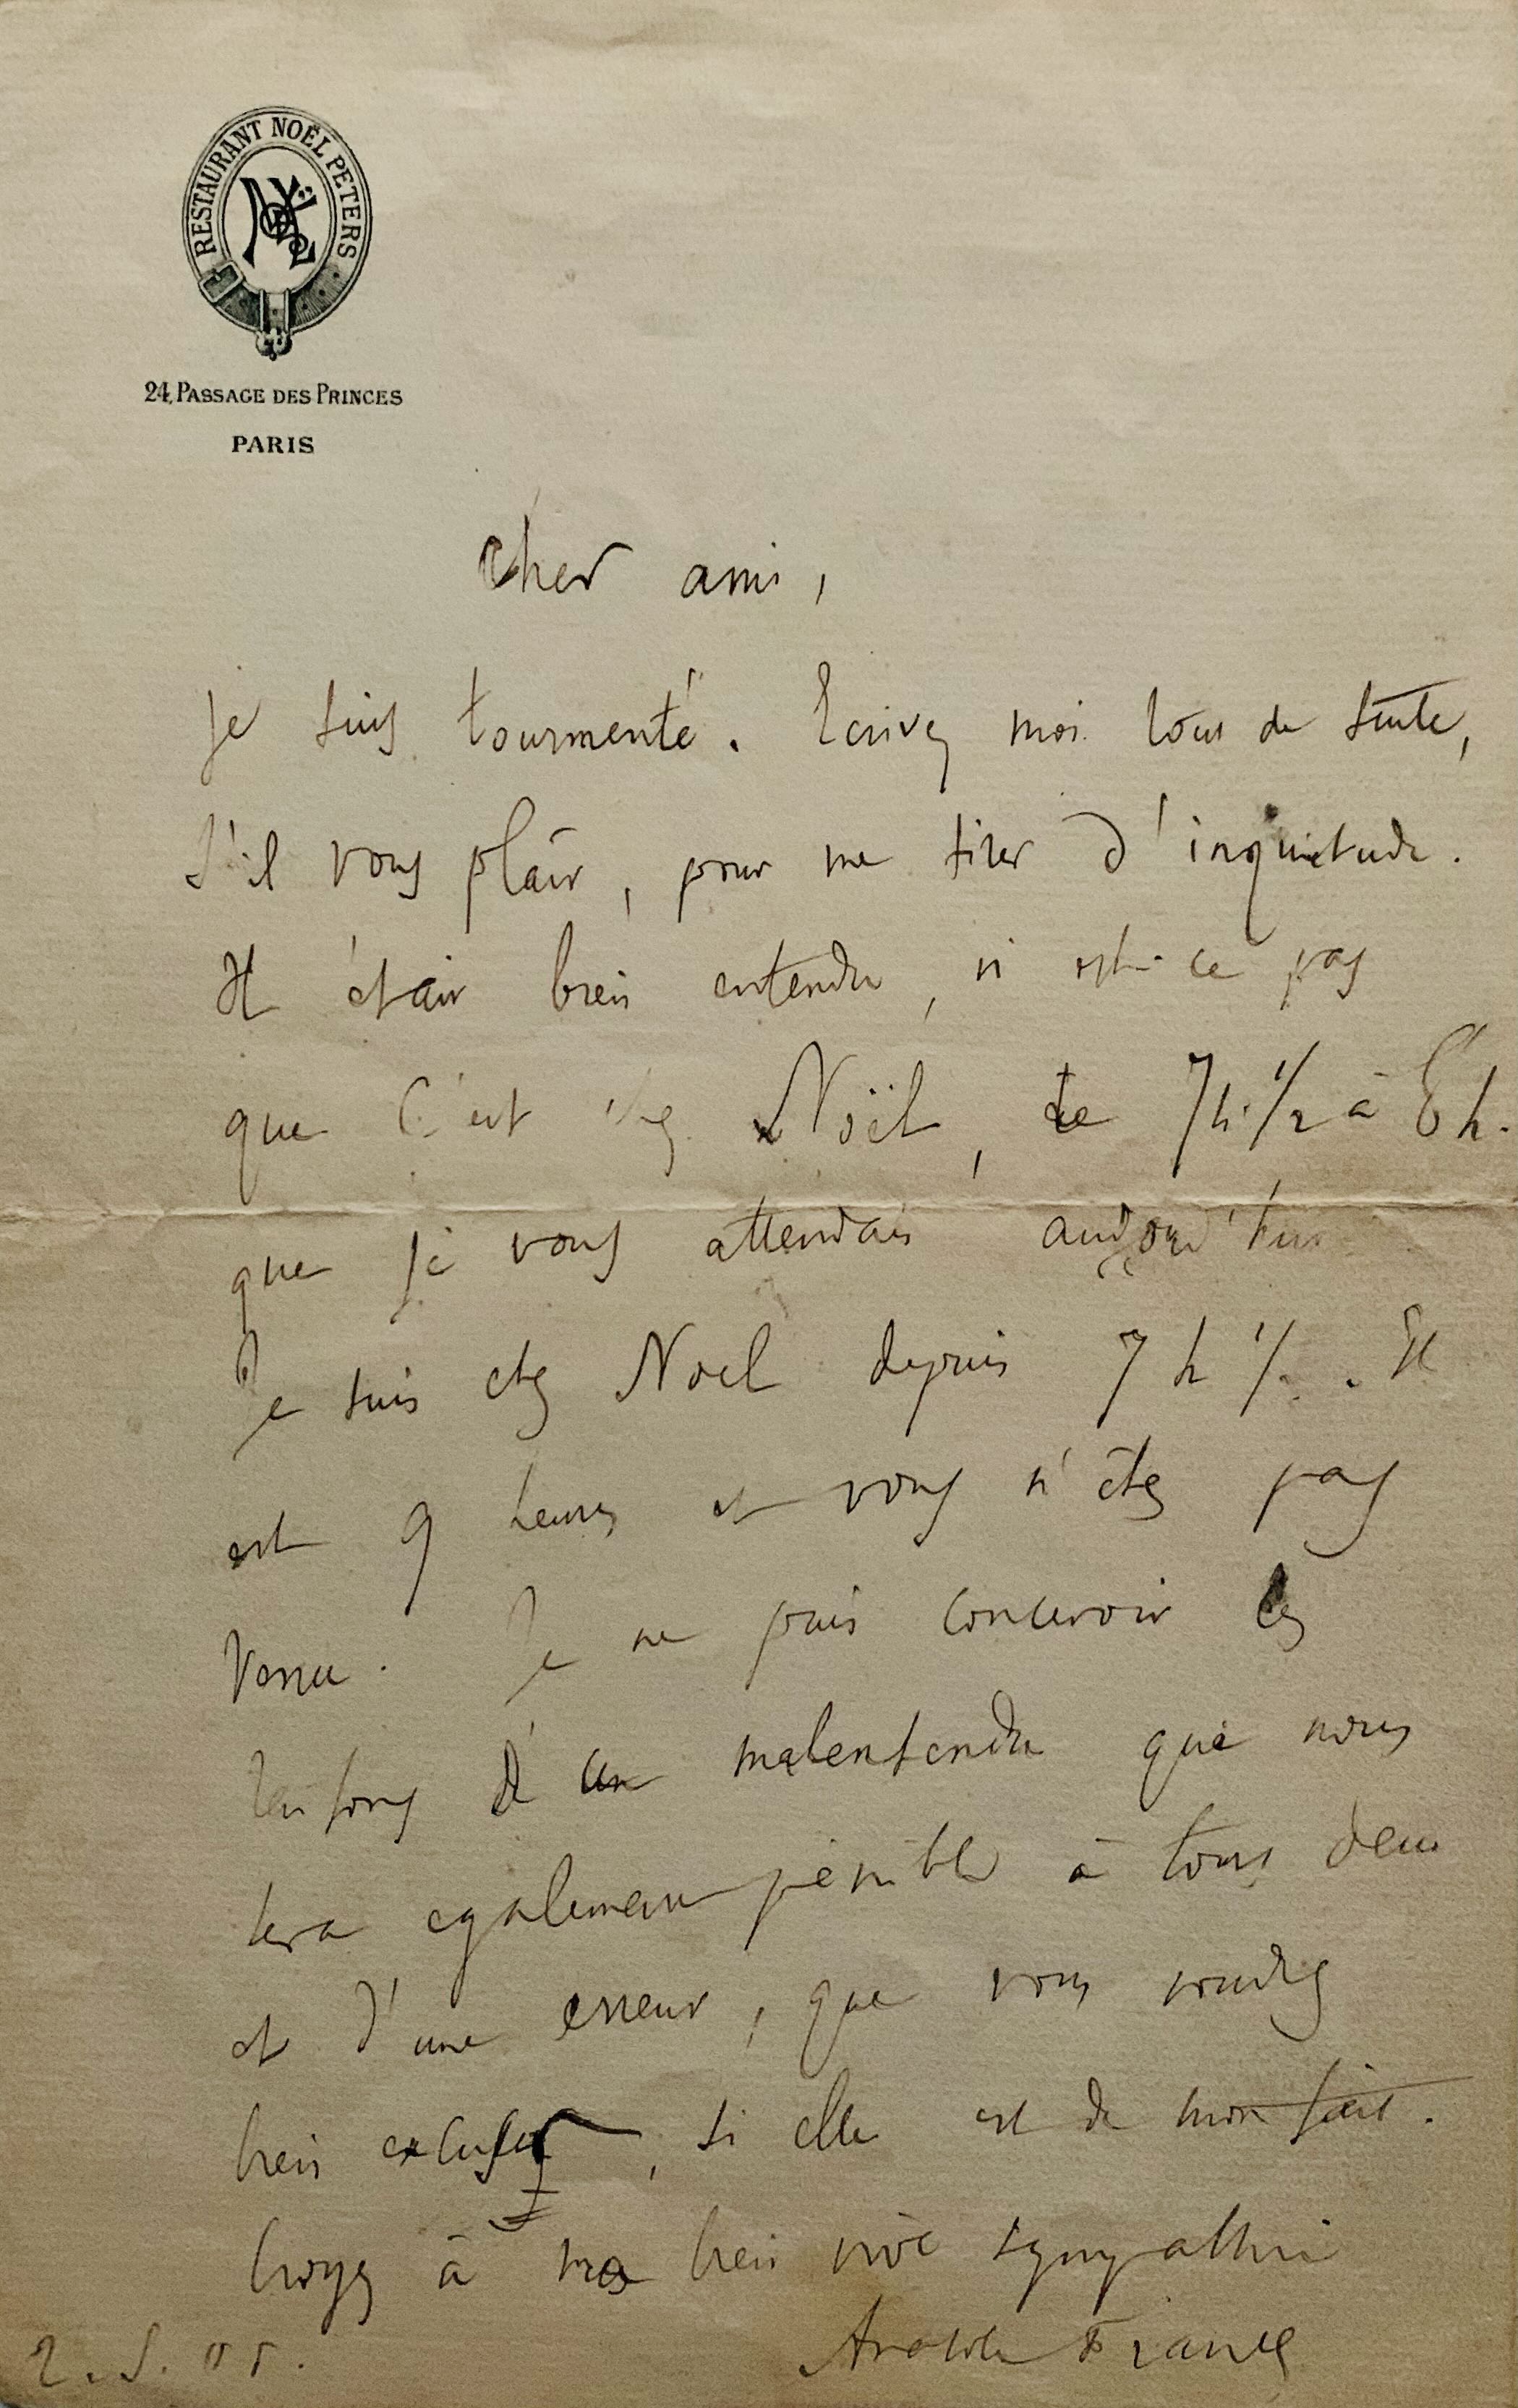 RESTAURANT NOËL PETERS
24, PASSAGE DES PRINCES
PARIS
Cher ami,
je suis tourmenté. Ecrivez moi tout de suite,
s'il vous plait, pour me tirer d'inquietude.
Il était bien entendu, n'est-ce pas
que c'est chez Noël, de 7 h. 1/2 à 8 h.
que je vous attendais aujourd'hui
Je suis chez Noel depuis 7 h 1/2. Il
est 9 heures et vous n'êtes pas
venu. Je ne puis concevoir les
raisons d'un malentendu qui nous
sera egalement pénible à tous deux
et d'une erreur, que vous voudrez
bien excuser, si elle est de mon fait.
Croyez à ma bien vive sympathie
Anatole France